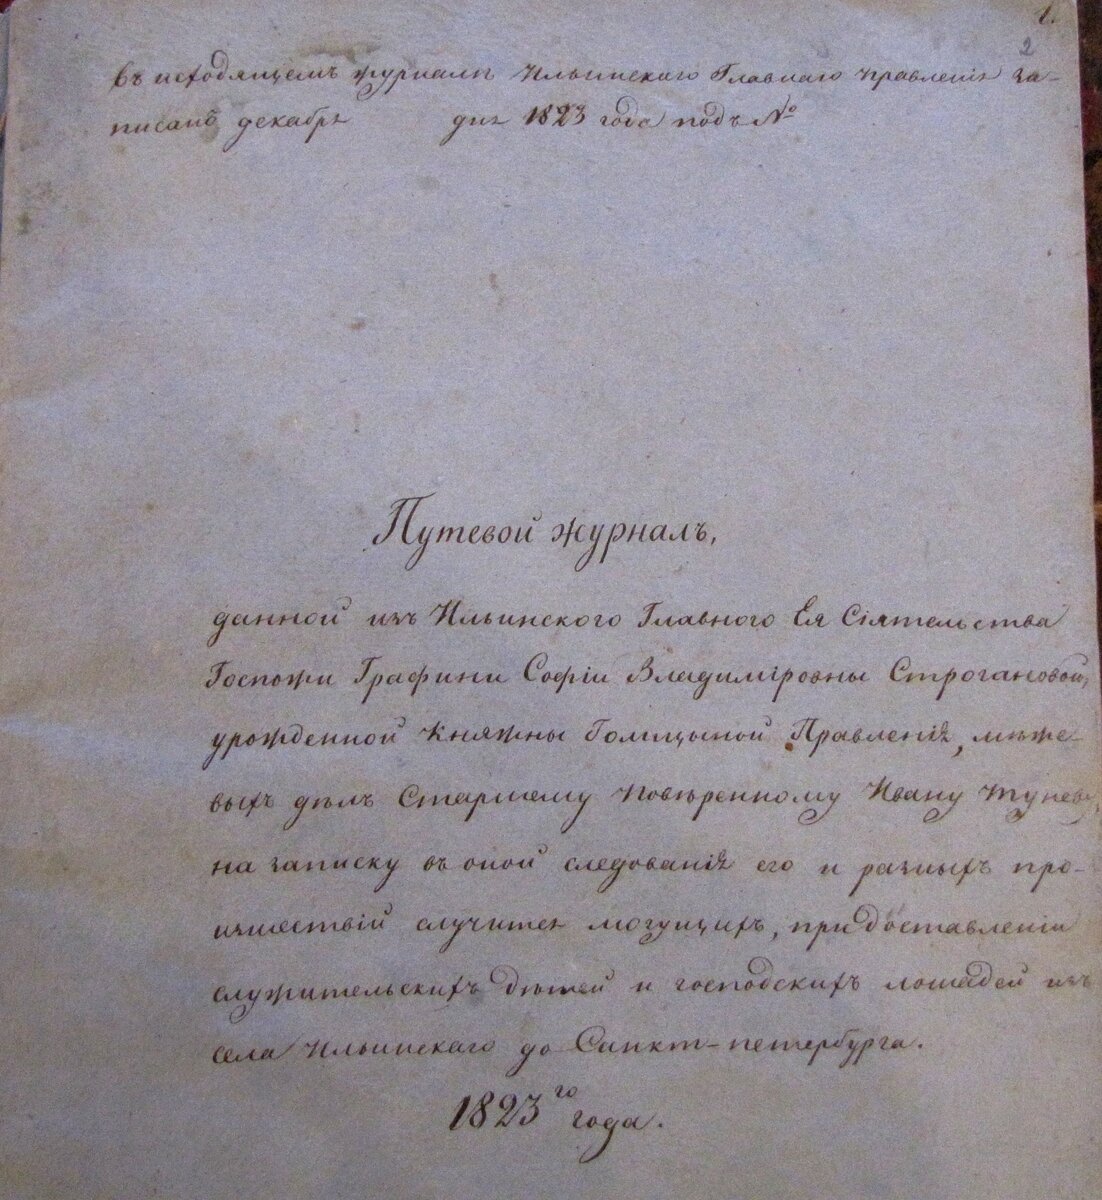 1.
2
Въ исходящемъ журналѣ Ильинскаго Главнаго Правленія за-
писанъ декабря дня 1823 года подъ №
Путевой журналъ,
данной изъ Ильинского Главного Ея Сіятельства
Госпожи Графини Софіи Владиміровны Строгановой,
урожденной Княжны Голицыной Правленія, меже-
выхъ дѣлъ Старшему Повѣренному Ивану
на записку въ оной следованія его и разныхъ про-
изшествій случится могущихъ, при доставленіи
служительскихъ дѣтей и господскихъ лошадей изъ
села Ильинскаго до Санкт-петербурга.
1823го года.